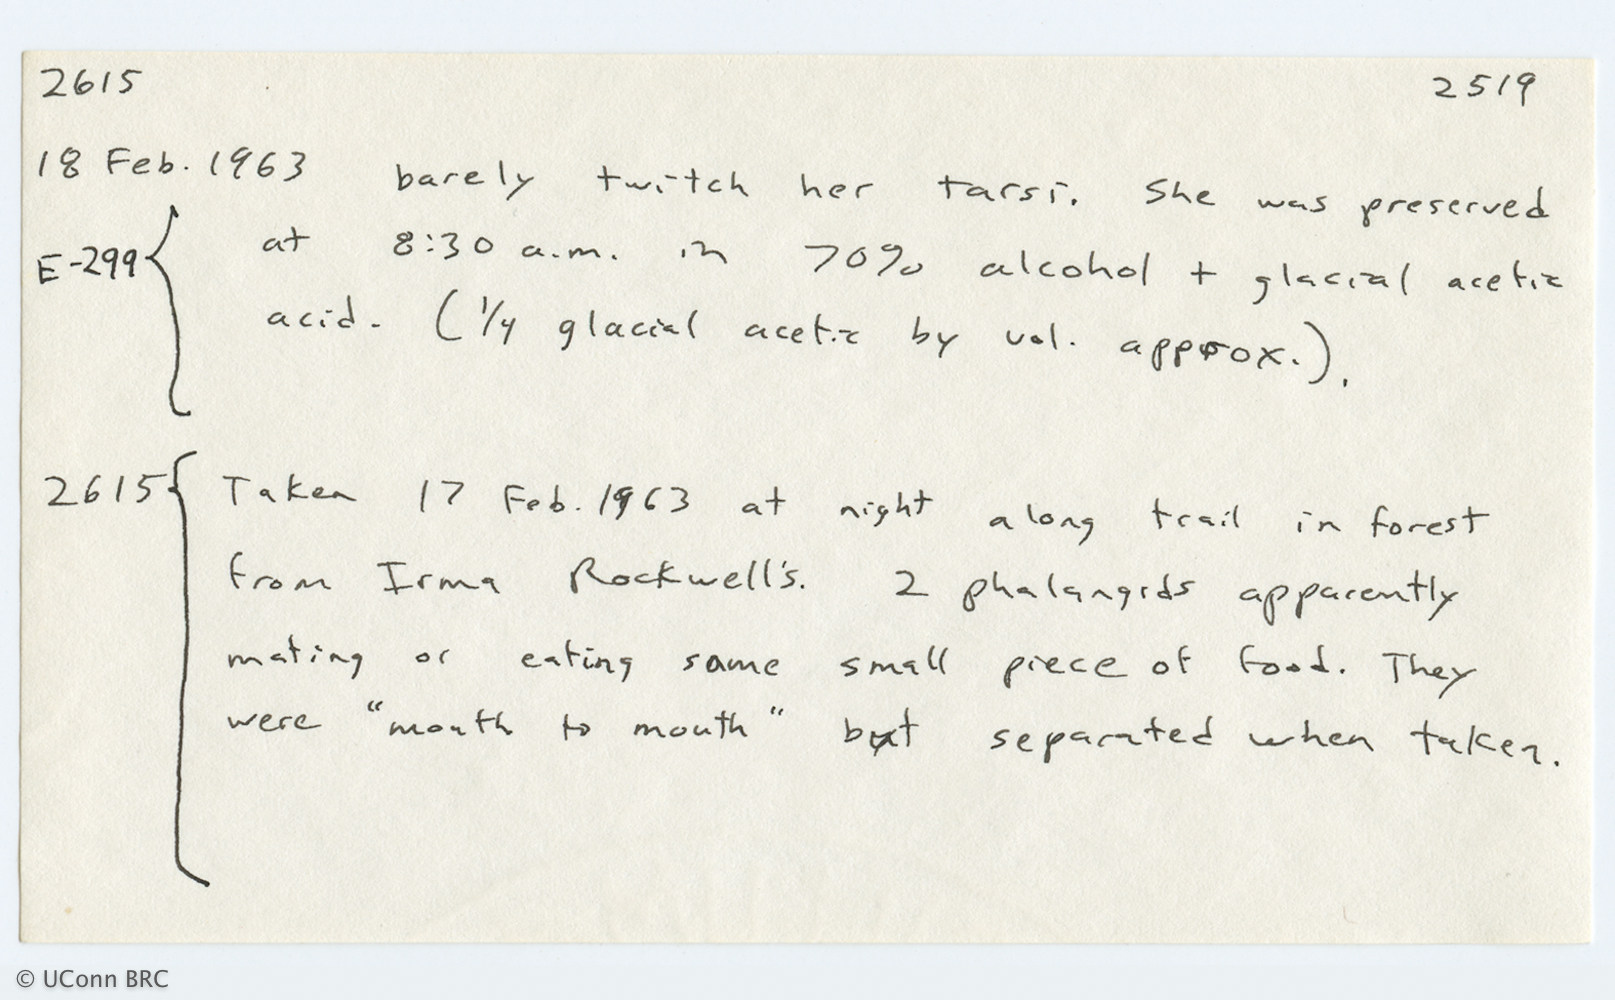 2615 2519
18 Feb. 1963 barely twitch her tarsi. She was preserved
E-299 at 8:30 a.m. in 70% alcohol + glacial acetic
acid. (1/4 glacial acetic by vol. approx.).
2615 Taken 17 Feb. 1963 at night along trail in forest
from Irma Rockwell's. 2 phalangids apparently
mating or eating same small piece of food. They
were "mouth to mouth" but separated when taken.
© UConn BRC